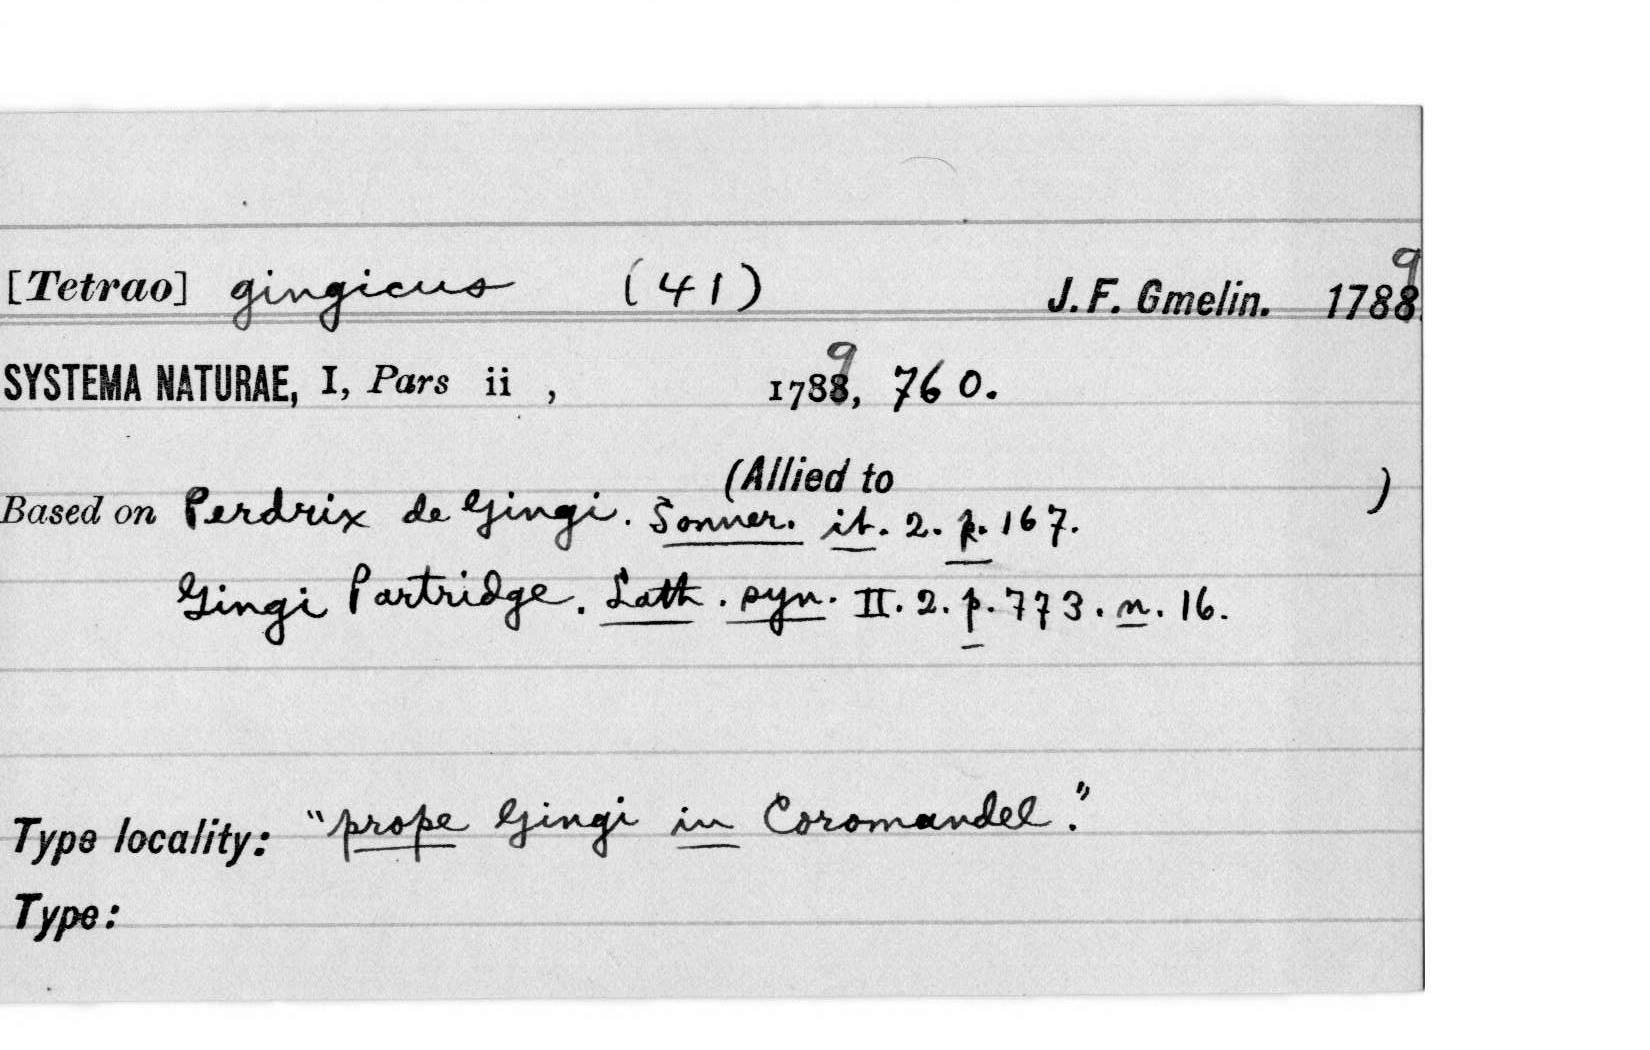 [Tetrao] gingicus (41) J. F. Gmelin. 17889
SYSTEMA NATURAE, I, Pars ii , 17889, 760.
(Allied to )
Based on Perdrix de Gingi. Sonner. it. 2. p. 167.
Gingi Partridge. Lath. syn. II. 2. p. 773. n. 16.
Type locality: "prope Gingi in Coromandel."
Type: